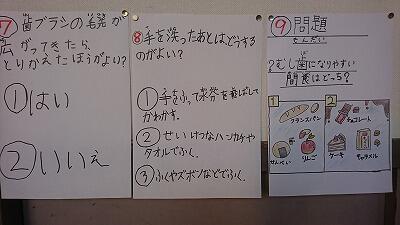 ⑦歯ブラシの毛が
広がってきたら、
とりかえたほうがよい？
①はい
②いいえ
⑧手を洗ったあとはどうする
のがよい？
①手をふって水分を飛ばして
かわかす。
②せいけつなハンカチや
タオルでふく。
③ふくやズボンなどでふく。
⑨問題
もんだい
むし歯になりやすい
間食はどっち？
1
フランスパン
せんべい
りんご
2
チョコレート
ケーキ
キャラメル